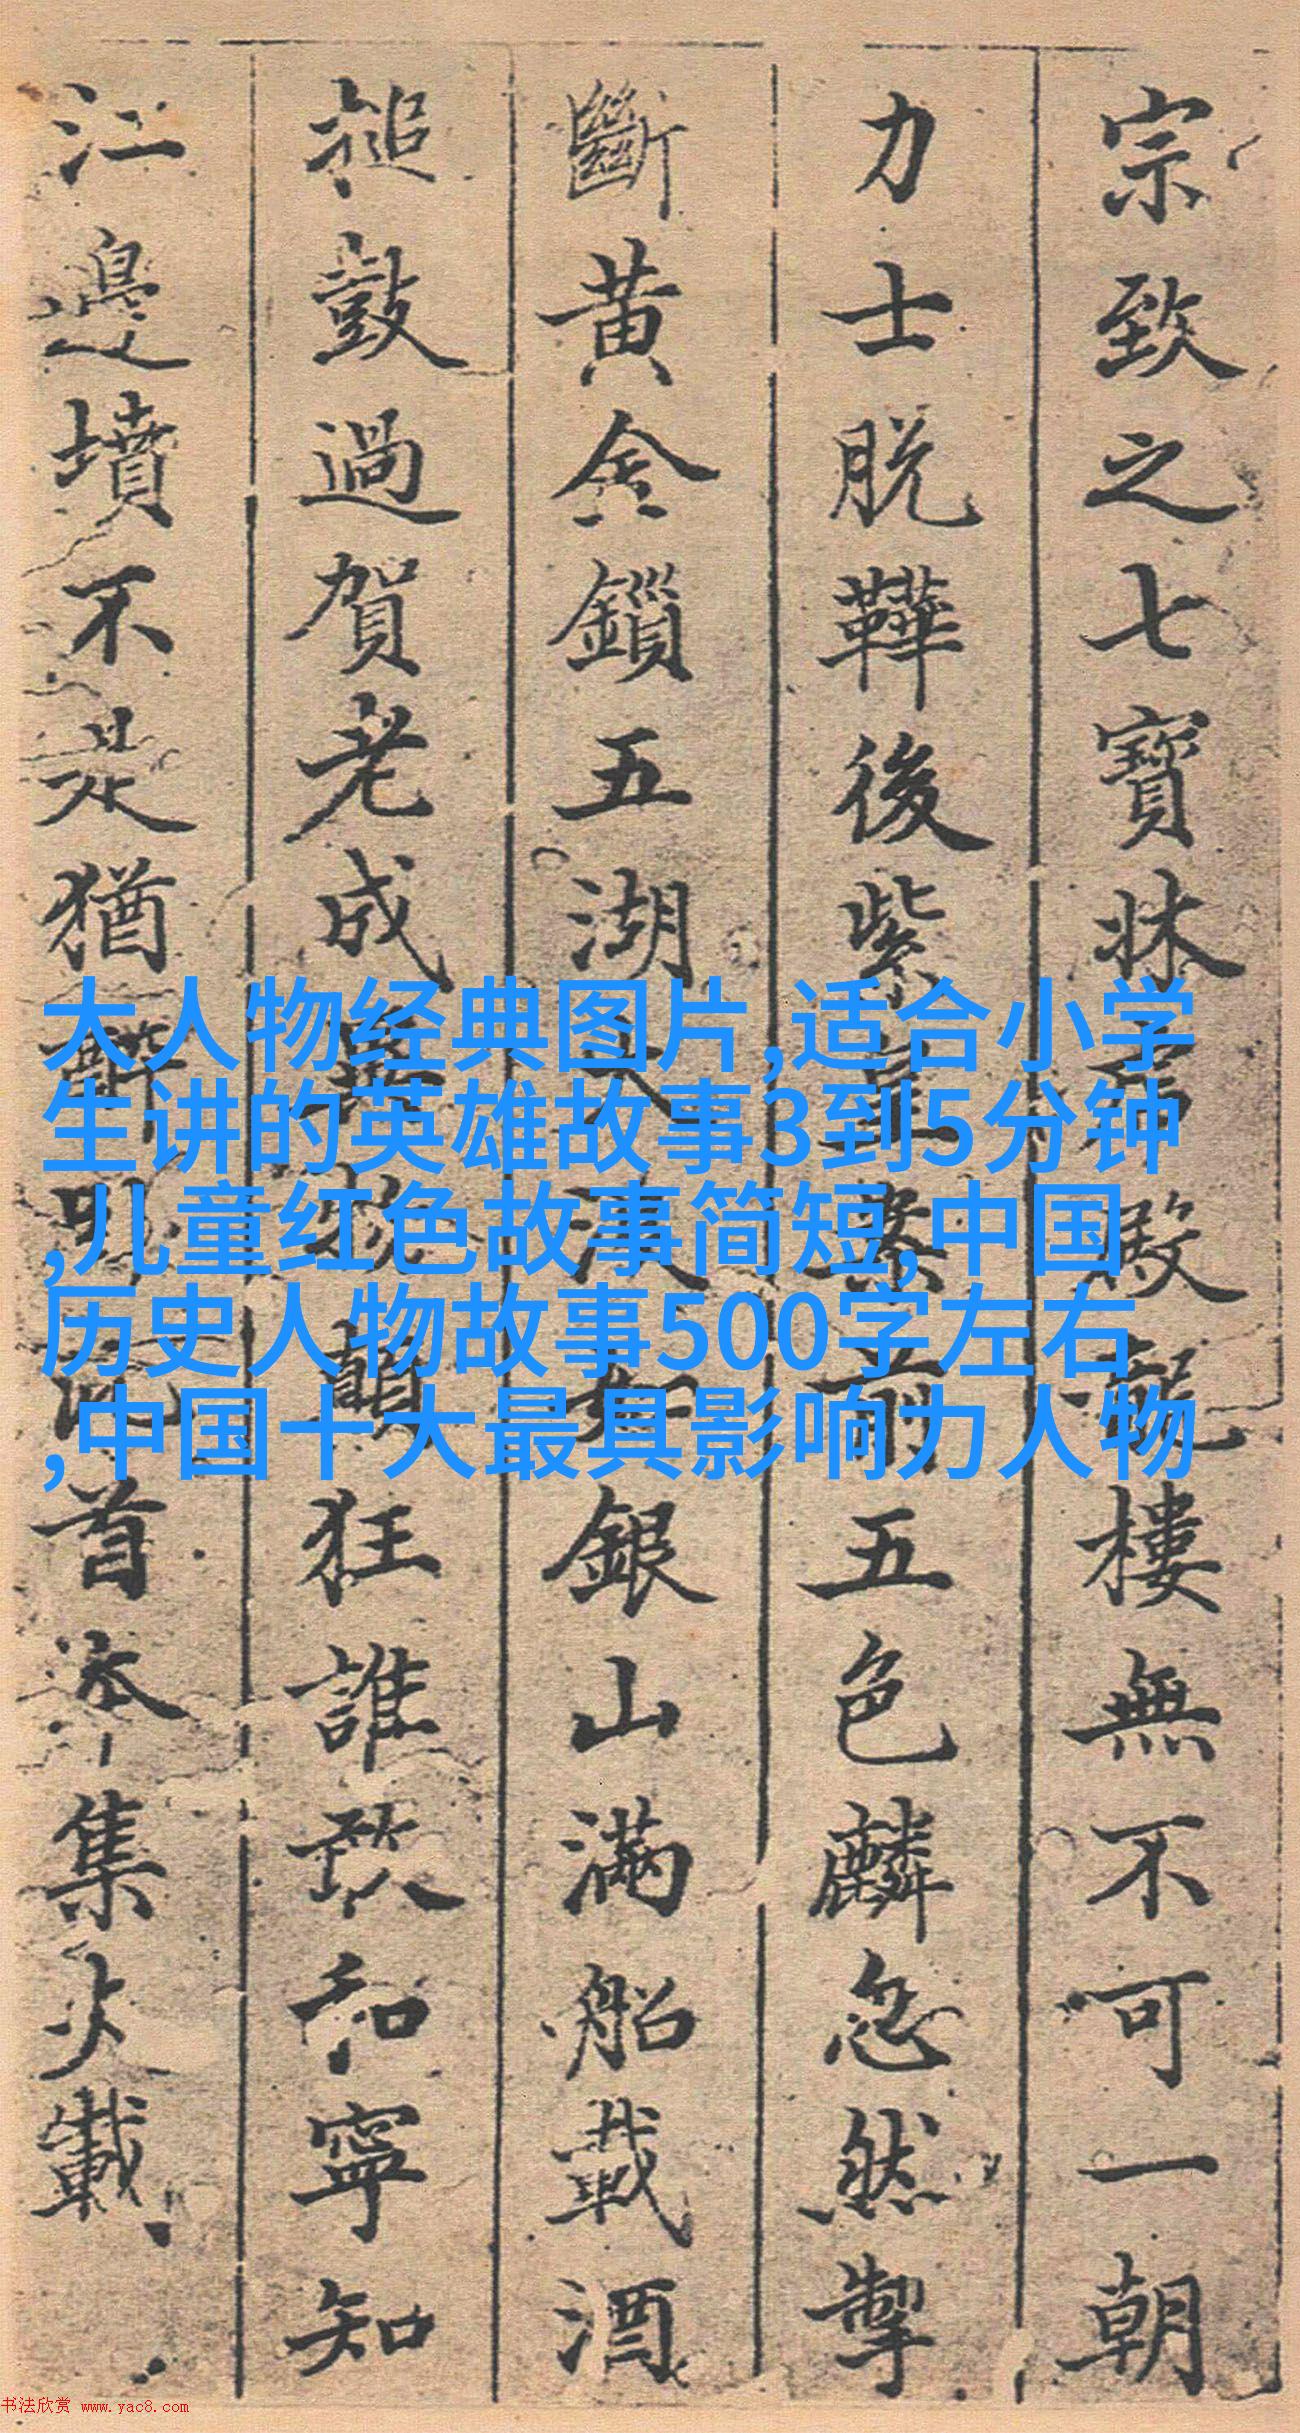 宗致之七寶牀殿龍樓無不可一朝
力士脫鞾後紫皇案前五色麟忽然掣
斷黃金鎖五湖大浪如銀山滿船載酒
搥鼓過賀老成異物顛狂誰敢和寧知
江邊墳不是猶醉首本集載
大人物经典图片,适合小学
生讲的英雄故事3到5分钟
,儿童红色故事简短,中国
历史人物故事500字左右
,中国十大最具影响力人物
书法欣赏 www.yac8.com